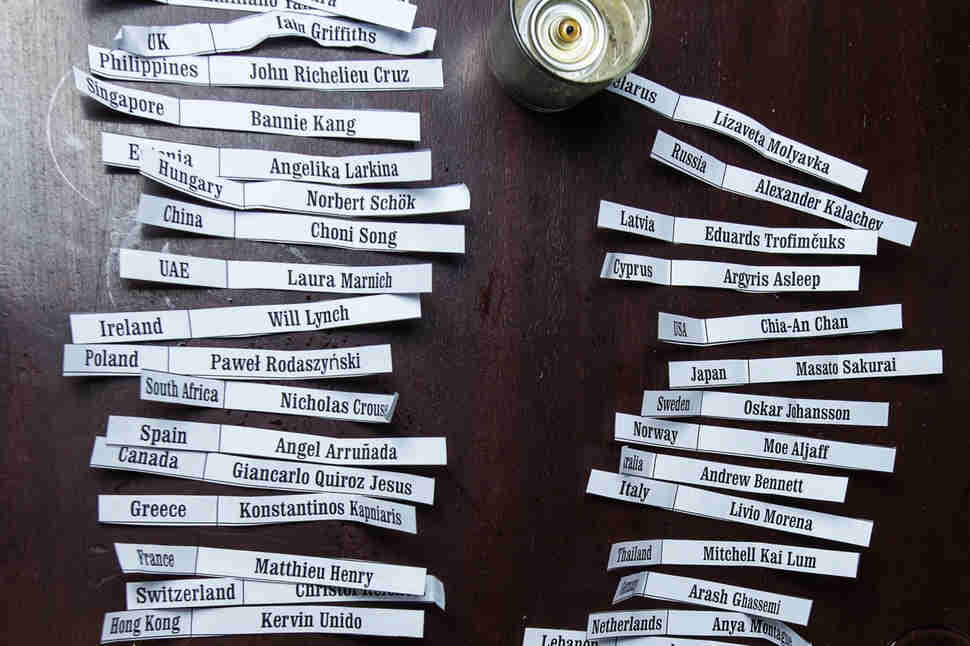 UK Iain Griffiths
Philippines John Richelieu Cruz
Singapore Bannie Kang
Estonia Angelika Larkina
Hungary Norbert Schök
China Choni Song
UAE Laura Marnich
Ireland Will Lynch
Poland Paweł Rodaszyński
South Africa Nicholas Crouse
Spain Angel Arruñada
Canada Giancarlo Quiroz Jesus
Greece Konstantinos Kapniaris
France Matthieu Henry
Switzerland Christof
Hong Kong Kervin Unido
elarus Lizaveta Molyavka
Russia Alexander Kalachev
Latvia Eduards Trofimčuks
Cyprus Argyris Asleep
USA Chia-An Chan
Japan Masato Sakurai
Sweden Oskar Johansson
Norway Moe Aljaff
tralia Andrew Bennett
Italy Livio Morena
Thailand Mitchell Kai Lum
Germany Arash Ghassemi
Netherlands Anya Montague
Lebanon